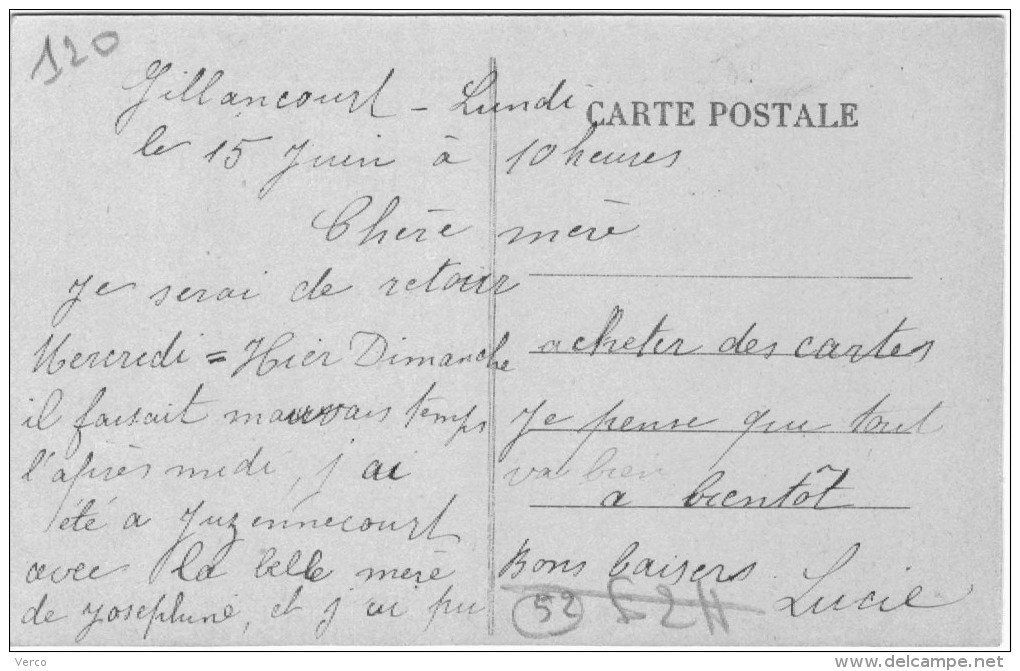 120
Gillancourt - Lundi
CARTE POSTALE
le 15 Juin à 10 heures
Chère mère
Je serai de retour
Mercredi = Hier Dimanche
il faisait mauvais temps
l'après midi, j ai
été a Juzennecourt
avec la belle mère
de Josephine, et j ai pu
acheter des cartes
Je pense que tout
va bien
a bientôt
Bons baisers
Lucie
52
Verco
delcampe.net